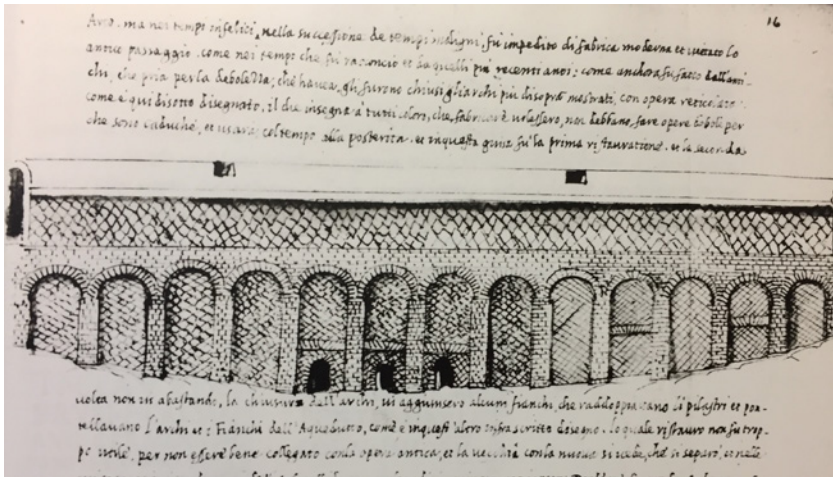 16
Arco. ma nei tempi infelici, nella successione de tempi maligni, fu impedito di fabrica moderna et vietato lo
antico passaggio come nei tempo che fu racconcio et da quelli più recenti anoi; come anchora fu fatto dall'anti-
chi, che pria per la debolezza, che havea, gli furono chiusi gli archi più disopra mostrati, con opera reticolata
come è qui disotto disegnato, il che insegna à tutti coloro, che fabricare volessero, non debbano fare opere debole per
che sono caduche, et col tempo alla posterita. et in questa guisa fu la prima ristauratione. et la seconda
volta non li abastando, la chiusura dell'archi, vi aggiunsero alcuni fianchi, che raddoppiavano li pilastri et
l'archi et i Fianchi dell'Aquedutto, come è in quest'altro infrascritto disegno. lo quale ristauro non fu trop-
po utile, per non essere bene collegato con la opera antica, et la vecchia con la nuova si vede, che si separò, et nelle